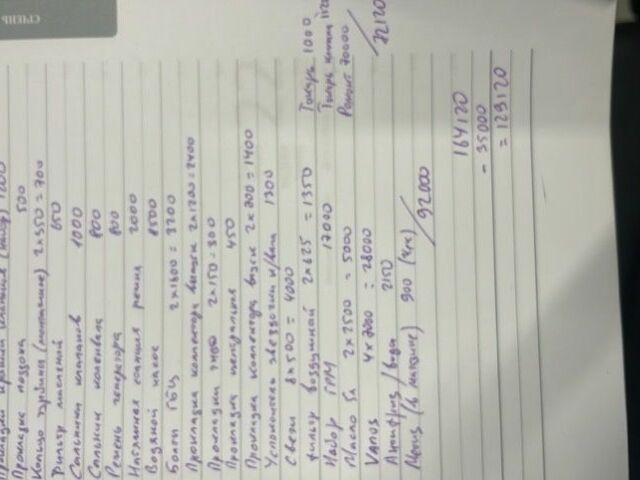 СІЧЕНЬ
Прокладка поддона 500
Кольцо турбины (металлич) 2x350 = 700
Фильтр масляный 650
Сальники клапанов 1000
Сальник коленвала 800
Ремень генератора 800
Натяжная станция ремня 2000
Водяной насос 8500
Болты ГБЦ 2x1600 = 3200
Прокладка коллектора выпуск 2x1200 = 2400
Прокладки 2x150 = 300
Прокладка 450
Прокладка коллектора впуск 2x700 = 1400
Успокоитель звездочки 1300
Свечи 8x500 = 4000
Фильтр воздушный 2x625 = 1350
Набор ГРМ 17000
Масло 5л 2x2500 = 5000
Vanos 4x7000 = 28000
Антифриз / вода 2150
(в магазине) 900
/92000
Токарь 1000
Токарь
Ремонт 70000
/72120
164120
- 35000
= 129120